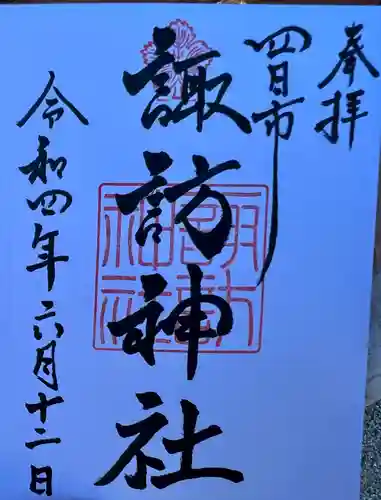 奉拝
四日市
諏訪神社
令和四年六月十二日
諏訪神社